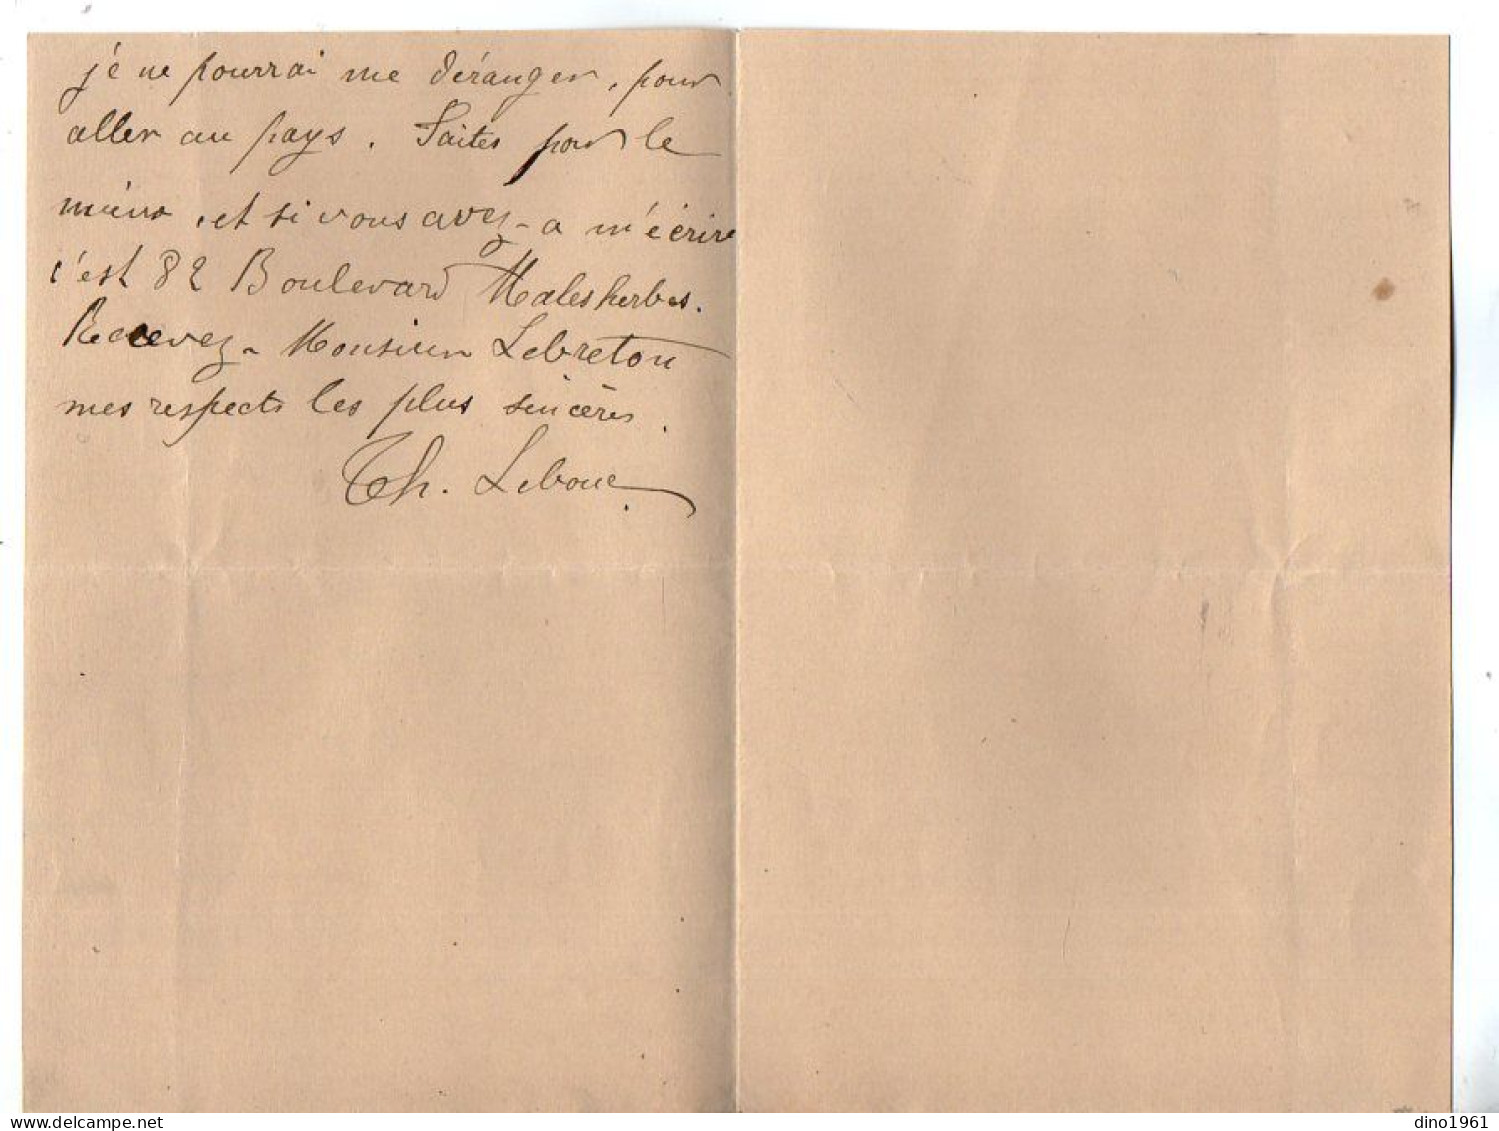 je ne pourrai me déranger, pour
aller au pays. Faites pour le
mieux, et si vous avez-a m'écrire
c'est 82 Boulevard Malesherbes.
Recevez - Monsieur Lebreton
mes respects les plus sincères.
Th. Leboue
dino1961